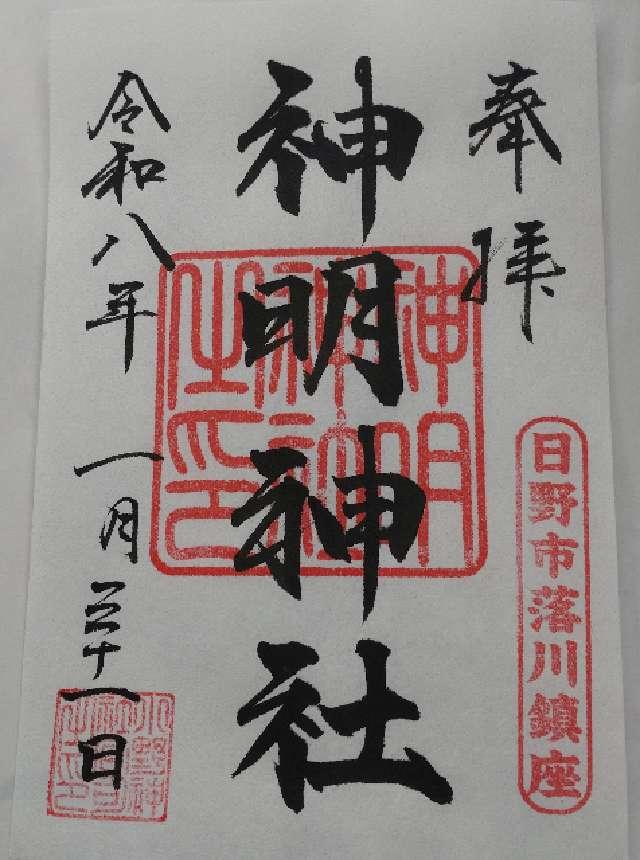 奉拝
日野市落川鎮座
神明神社
神明
神社
之印
令和八年 一月三十一日